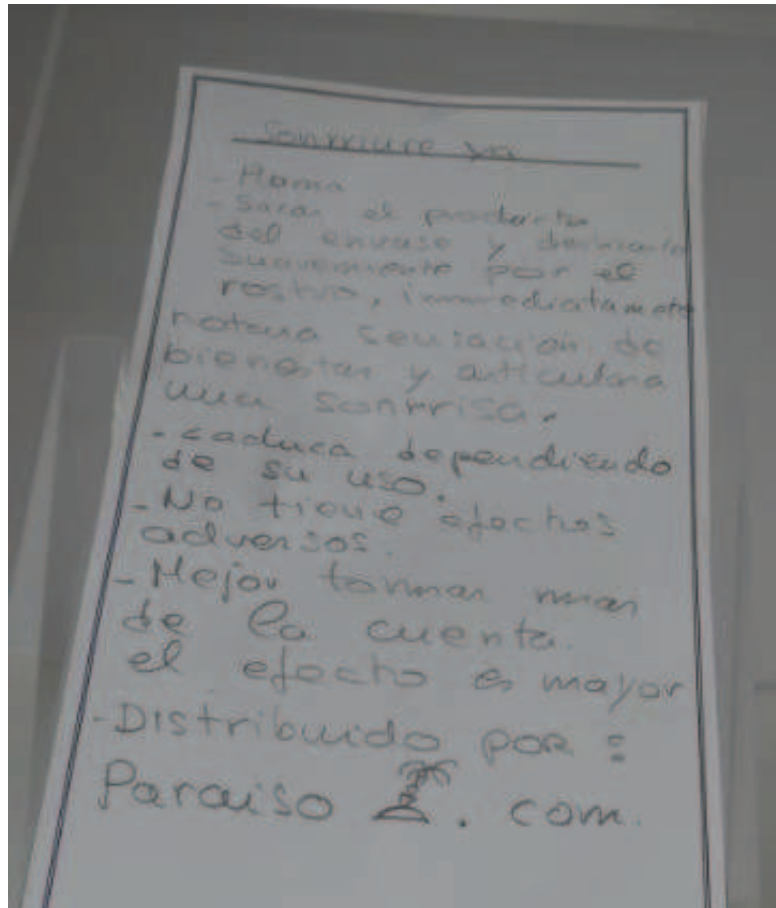 - Sacar el producto
del envase y
suavemente por el
rostro, immediatamete
notara sensacion de
bienestar y articulara
una sonrrisa.
- caduca dependiendo
de su uso.
- No tiene efectos
adversos.
- Mejor tommar mas
de la cuenta.
el efecto es mayor
- Distribuido por :
Paraiso . com.